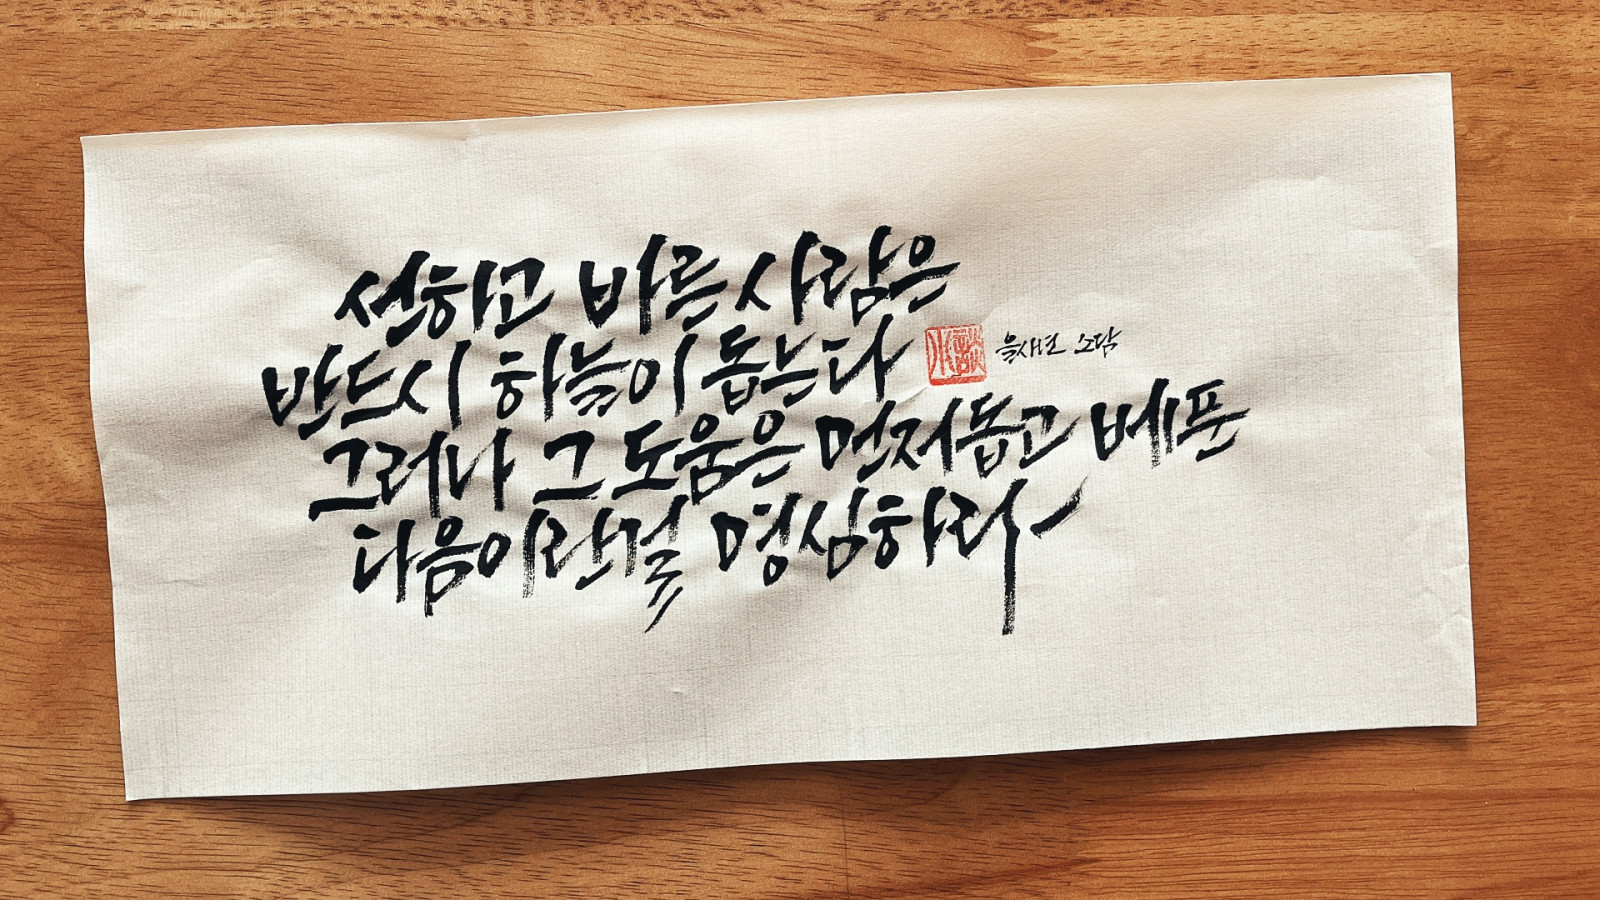 선하고 바른 사람은
반드시 하늘이 돕는다
小談 을새변 소담
그러나 그 도움은 먼저 돕고 베푼
다음이란걸 명심하라